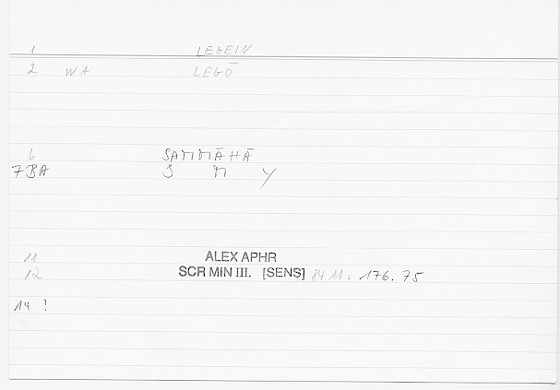 1 LEGEIN
2 WA LEGŌ
6
7 BA S M Y
11 ALEX APHR
12 SCR MIN III. [SENS] 84 M: 176. 75
14 !